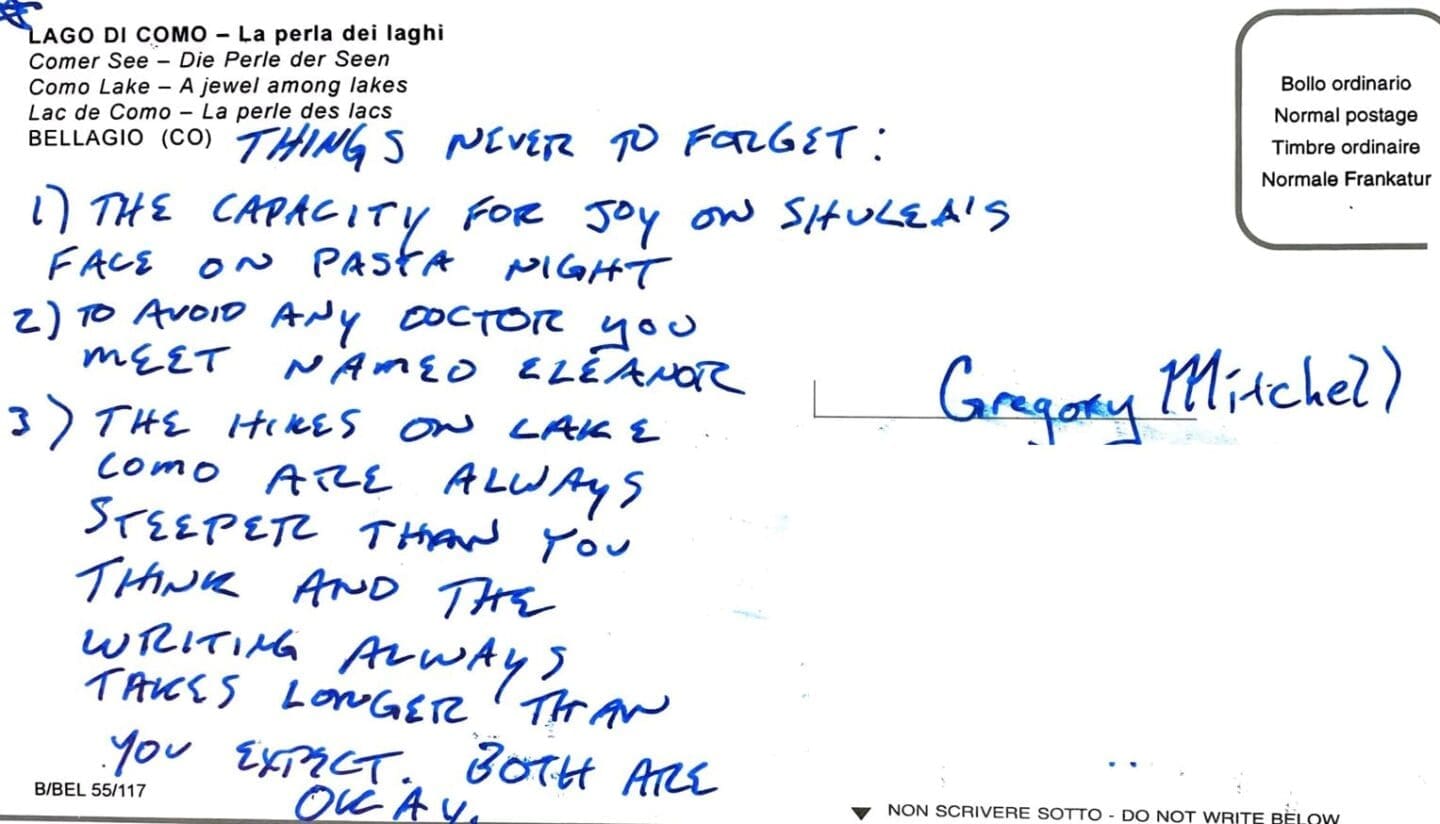 LAGO DI COMO – La perla dei laghi
Comer See – Die Perle der Seen
Como Lake – A jewel among lakes
Lac de Como – La perle des lacs
BELLAGIO (CO)
THINGS NEVER TO FORGET:
1) THE CAPACITY FOR JOY ON SHULEA'S
FACE ON PASTA NIGHT
2) TO AVOID ANY DOCTOR YOU
MEET NAMED ELEANOR
3) THE HIKES ON LAKE
COMO ARE ALWAYS
STEEPER THAN YOU
THINK AND THE
WRITING ALWAYS
TAKES LONGER THAN
YOU EXPECT. BOTH ARE
OKAY.
B/BEL 55/117
Bollo ordinario
Normal postage
Timbre ordinaire
Normale Frankatur
Gregory Mitchell
NON SCRIVERE SOTTO - DO NOT WRITE BELOW